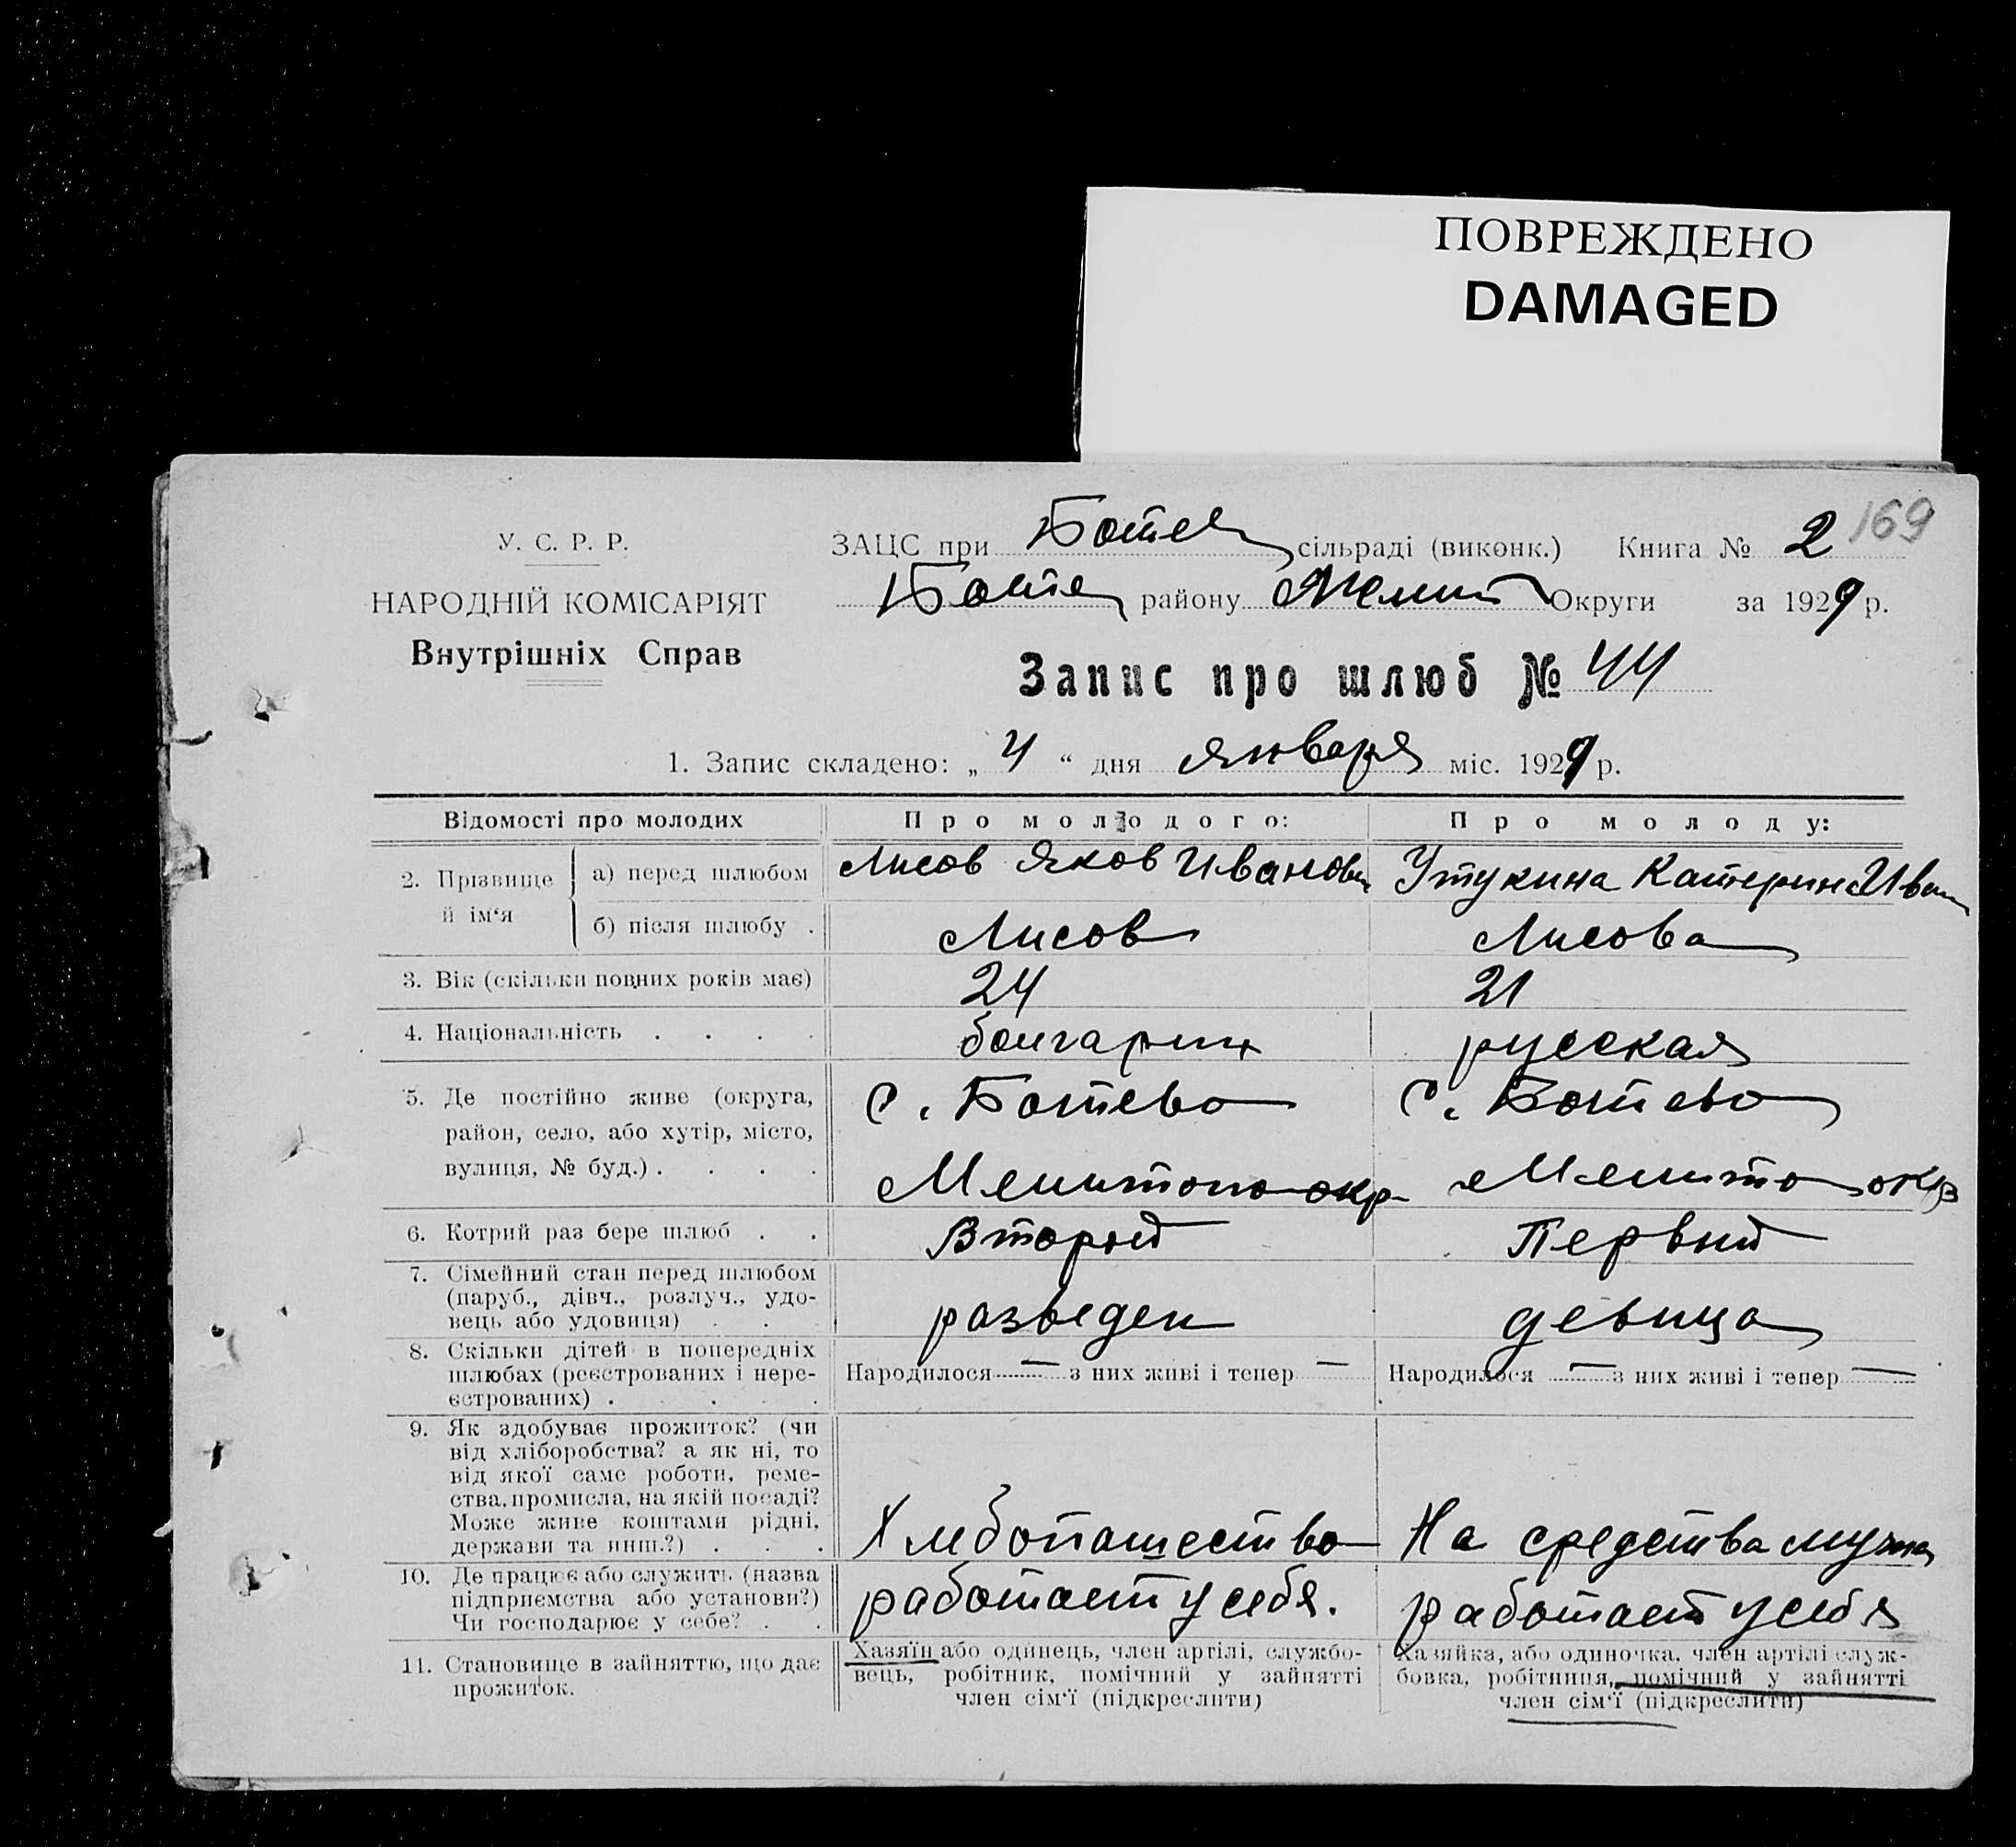 ПОВРЕЖДЕНО
DAMAGED
169
У. С. Р. Р.
НАРОДНІЙ КОМІСАРІЯТ
Внутрішніх Справ
ЗАЦС при Ботев сільраді (виконк.) Книга № 2
Ботев району Мелит Округи за 1929 р.
Запис про шлюб № 44
1. Запис складено: „ 4 “ дня января міс. 1929 р.
Відомості про молодих
Про молодого:
Про молоду:
2. Прізвище й ім‘я
а) перед шлюбом
Лисов Яков Иванович
Утукина Катерина Иван
б) після шлюбу .
Лисов
Лисова
3. Вік (скільки повних років має)
24
21
4. Національність . . . .
болгарин
русская
5. Де постійно живе (округа,
район, село, або хутір, місто,
вулиця, № буд.) . . . .
с. Ботево
Мелитопо окр
с. Ботево
Мелито окр
6. Котрий раз бере шлюб . .
Второй
Первый
7. Сімейний стан перед шлюбом
(паруб., дівч., розлуч., удо-
вець або удовиця) . .
разведен
девица
8. Скільки дітей в попередніх
шлюбах (реєстрованих і нере-
єстрованих) . . . .
Народилося — з них живі і тепер —
Народилося — з них живі і тепер —
9. Як здобуває прожиток? (чи
від хліборобства? а як ні, то
від якої саме роботи, реме-
ства, промисла, на якій посаді?
Може живе коштами рідні,
держави та инш.?) . . .
Хлебопашество
На средства мужа
10. Де працює або служить (назва
підприємства або установи?)
Чи господарює у себе? . .
работает у себя.
работает у себя
11. Становище в зайняттю, що дає
прожиток.
Хазяїн або одинець, член артілі, службо-
вець, робітник, помічний у зайнятті
член сім‘ї (підкреслити)
Хазяйка, або одиночка, член артілі служ-
бовка, робітниця, помічний у зайнятті
член сім‘ї (підкреслити)